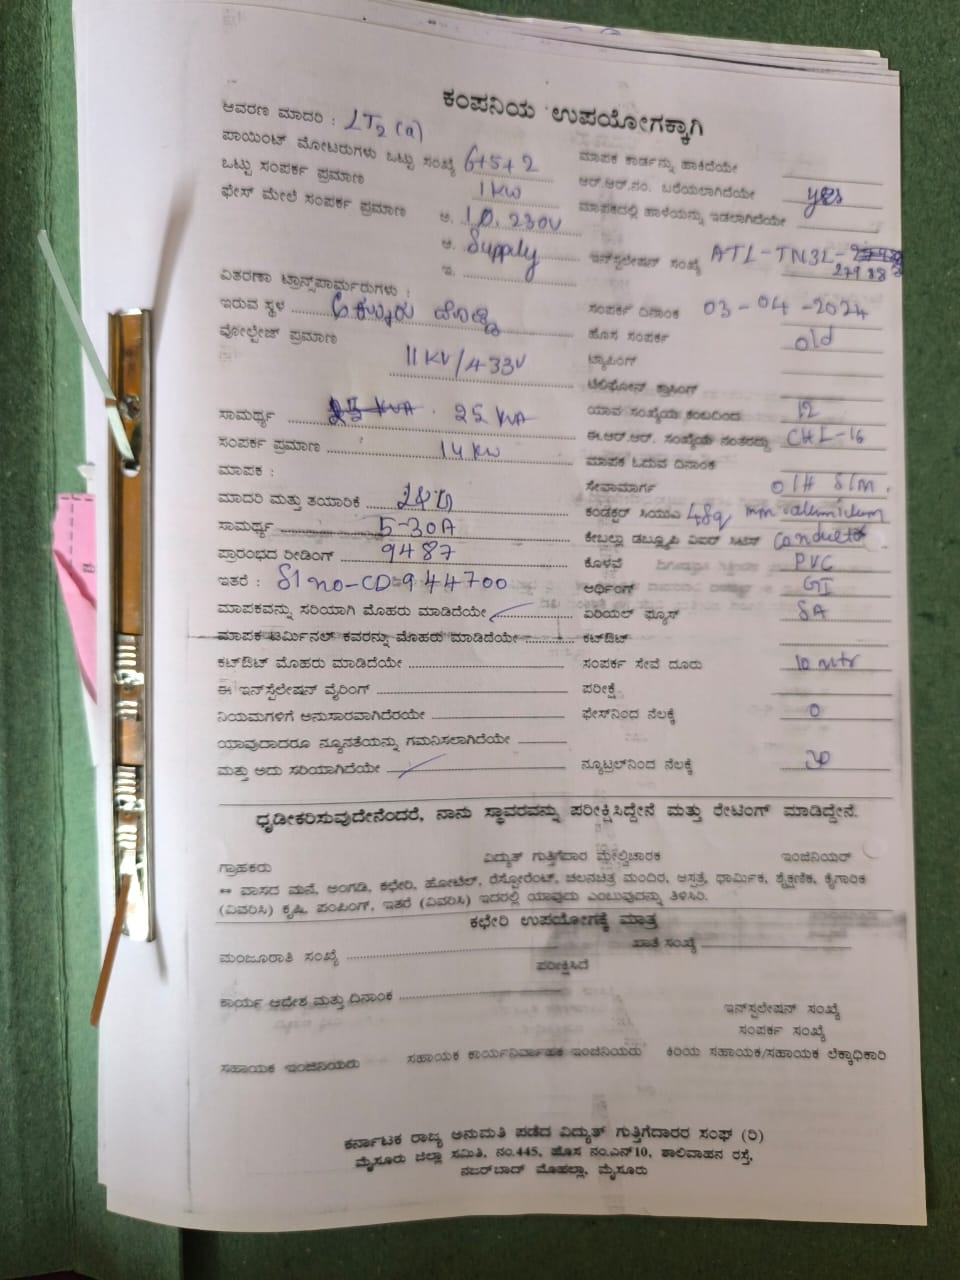 ಕಂಪನಿಯ ಉಪಯೋಗಕ್ಕಾಗಿ
ಆವರಣ ಮಾದರಿ : LT2 (a)
ಪಾಯಿಂಟ್ ಮೋಟರುಗಳು ಒಟ್ಟು ಸಂಖ್ಯೆ 6+5+2
ಮಾಪಕ ಕಾರ್ಡನ್ನು ಹಾಕಿದೆಯೇ
ಒಟ್ಟು ಸಂಪರ್ಕ ಪ್ರಮಾಣ 1 KW
ಆರ್.ಆರ್.ನಂ. ಬರೆಯಲಾಗಿದೆಯೇ yes
ಫೇಸ್ ಮೇಲೆ ಸಂಪರ್ಕ ಪ್ರಮಾಣ ಅ. 1Ø. 230V
ಮಾಪಕದಲ್ಲಿ ಹಾಳೆಯನ್ನು ಇಡಲಾಗಿದೆಯೇ
ಆ. Supply
ಇನ್‌ಸ್ಟಲೇಷನ್ ಸಂಖ್ಯೆ ATL-TN3L-
27988
ಇ.
ವಿತರಣಾ ಟ್ರಾನ್ಸ್‌ಫಾರ್ಮರುಗಳು :
ಇರುವ ಸ್ಥಳ
ಸಂಪರ್ಕ ದಿನಾಂಕ 03-04-2024
ವೋಲ್ಟೇಜ್ ಪ್ರಮಾಣ 11KV/433V
ಹೊಸ ಸಂಪರ್ಕ old
ಟ್ಯಾಪಿಂಗ್
ಟೆಲಿಫೋನ್ ಕ್ರಾಸಿಂಗ್
ಸಾಮರ್ಥ್ಯ 25 KVA
ಯಾವ ಸಂಖ್ಯೆಯ ಕಂಬದಿಂದ 12
ಸಂಪರ್ಕ ಪ್ರಮಾಣ 14 KW
ಈ.ಆರ್.ಆರ್. ಸಂಖ್ಯೆಯ ನಂತರದ್ದು CHL-16
ಮಾಪಕ :
ಮಾಪಕ ಓದುವ ದಿನಾಂಕ
ಮಾದರಿ ಮತ್ತು ತಯಾರಿಕೆ L&T
ಸೇವಾಮಾರ್ಗ O/H S/m.
ಸಾಮರ್ಥ್ಯ 5-30A
ಕಂಡಕ್ಟರ್ 4Sq mm aluminium
ಪ್ರಾರಂಭದ ರೀಡಿಂಗ್ 9487
conductor
ಇತರೆ : Sl no-CD-944700
ಕೊಳವೆ PVC
ಅರ್ಥಿಂಗ್ GI
ಮಾಪಕವನ್ನು ಸರಿಯಾಗಿ ಮೊಹರು ಮಾಡಿದೆಯೇ
ಏರಿಯಲ್ ಫ್ಯೂಸ್ 5A
ಮಾಪಕ ಟರ್ಮಿನಲ್ ಕವರನ್ನು ಮೊಹರು ಮಾಡಿದೆಯೇ
ಕಟ್‌ಔಟ್
ಕಟ್‌ಔಟ್ ಮೊಹರು ಮಾಡಿದೆಯೇ
ಸಂಪರ್ಕ ಸೇವೆ ದೂರು 10 mtr
ಈ ಇನ್‌ಸ್ಟಲೇಷನ್ ವೈರಿಂಗ್
ಪರೀಕ್ಷೆ
ನಿಯಮಗಳಿಗೆ ಅನುಸಾರವಾಗಿದೆರೆಯೇ
ಫೇಸ್‌ನಿಂದ ನೆಲಕ್ಕೆ 0
ಯಾವುದಾದರೂ ನ್ಯೂನತೆಯನ್ನು ಗಮನಿಸಲಾಗಿದೆಯೇ
ಮತ್ತು ಅದು ಸರಿಯಾಗಿದೆಯೇ
ನ್ಯೂಟ್ರಲ್‌ನಿಂದ ನೆಲಕ್ಕೆ
ಧೃಡೀಕರಿಸುವುದೇನೆಂದರೆ, ನಾನು ಸ್ಥಾವರವನ್ನು ಪರೀಕ್ಷಿಸಿದ್ದೇನೆ ಮತ್ತು ರೇಟಿಂಗ್ ಮಾಡಿದ್ದೇನೆ.
ಗ್ರಾಹಕರು
ವಿದ್ಯುತ್ ಗುತ್ತಿಗೆದಾರ ಮೇಲ್ವಿಚಾರಕ
ಇಂಜಿನಿಯರ್
** ವಾಸದ ಮನೆ, ಅಂಗಡಿ, ಕಛೇರಿ, ಹೋಟೆಲ್, ರೆಸ್ಟೋರೆಂಟ್, ಚಲನಚಿತ್ರ ಮಂದಿರ, ಆಸ್ಪತ್ರೆ, ಧಾರ್ಮಿಕ, ಶೈಕ್ಷಣಿಕ, ಕೈಗಾರಿಕ
(ವಿವರಿಸಿ) ಕೃಷಿ, ಪಂಪಿಂಗ್, ಇತರೆ (ವಿವರಿಸಿ) ಇದರಲ್ಲಿ ಯಾವುದು ಎಂಬುವುದನ್ನು ತಿಳಿಸಿರಿ.
ಕಛೇರಿ ಉಪಯೋಗಕ್ಕೆ ಮಾತ್ರ
ಮಂಜೂರಾತಿ ಸಂಖ್ಯೆ
ಖಾತೆ ಸಂಖ್ಯೆ
ಪರೀಕ್ಷಿಸಿದೆ
ಕಾರ್ಯ ಆದೇಶ ಮತ್ತು ದಿನಾಂಕ
ಇನ್‌ಸ್ಟಲೇಷನ್ ಸಂಖ್ಯೆ
ಸಂಪರ್ಕ ಸಂಖ್ಯೆ
ಸಹಾಯಕ ಇಂಜಿನಿಯರು
ಸಹಾಯಕ ಕಾರ್ಯನಿರ್ವಾಹಕ ಇಂಜಿನಿಯರು
ಕಿರಿಯ ಸಹಾಯಕ/ಸಹಾಯಕ ಲೆಕ್ಕಾಧಿಕಾರಿ
ಕರ್ನಾಟಕ ರಾಜ್ಯ ಅನುಮತಿ ಪಡೆದ ವಿದ್ಯುತ್ ಗುತ್ತಿಗೆದಾರರ ಸಂಘ (ರಿ)
ಮೈಸೂರು ಜಿಲ್ಲಾ ಸಮಿತಿ, ನಂ.445, ಹೊಸ ನಂ.ಎನ್10, ಶಾಲಿವಾಹನ ರಸ್ತೆ,
ನಜರ್‌ಬಾದ್ ಮೊಹಲ್ಲಾ, ಮೈಸೂರು